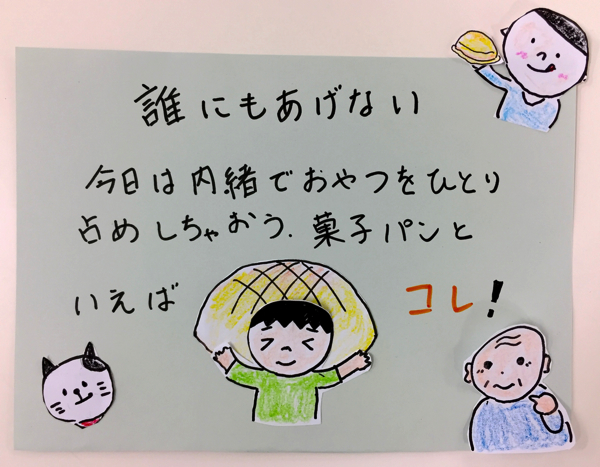 誰にもあげない
今日は内緒でおやつをひとり
占めしちゃおう.菓子パンと
いえば コレ!